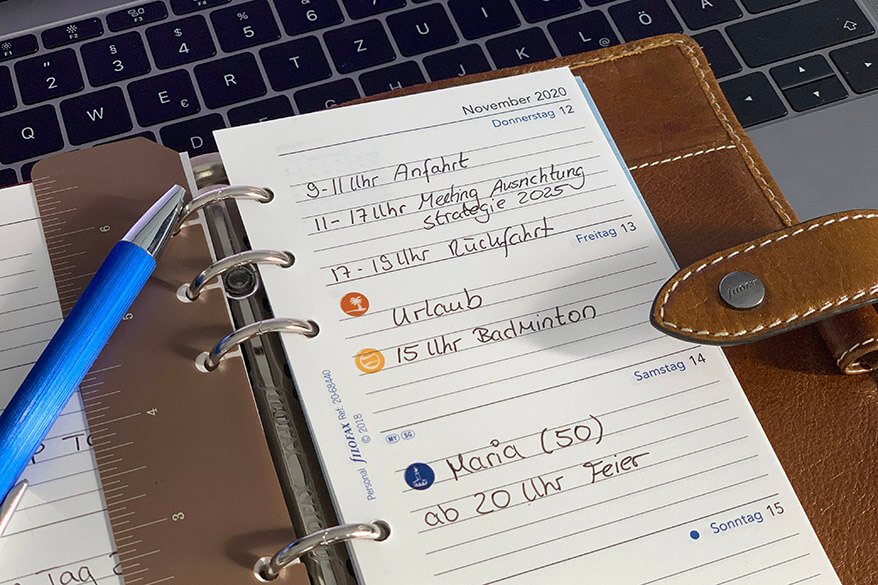 " 2
§ 3
$ 4
% 5
& 6
Q
W
E
€
R
T
Z
U
I
O
P
D
F
G
H
J
K
L
@
Ö
November 2020
Donnerstag 12
9-11 Uhr Anfahrt
11-17 Uhr Meeting Ausrichtung
Strategie 2025
17-19 Uhr Rückfahrt
Freitag 13
Urlaub
15 Uhr Badminton
Samstag 14
MY SG
Maria (50)
ab 20 Uhr Feier
Sonntag 15
Personal FILOFAX Ref. 20-68440
© 2018
filofax
6
5
4
3
Tag